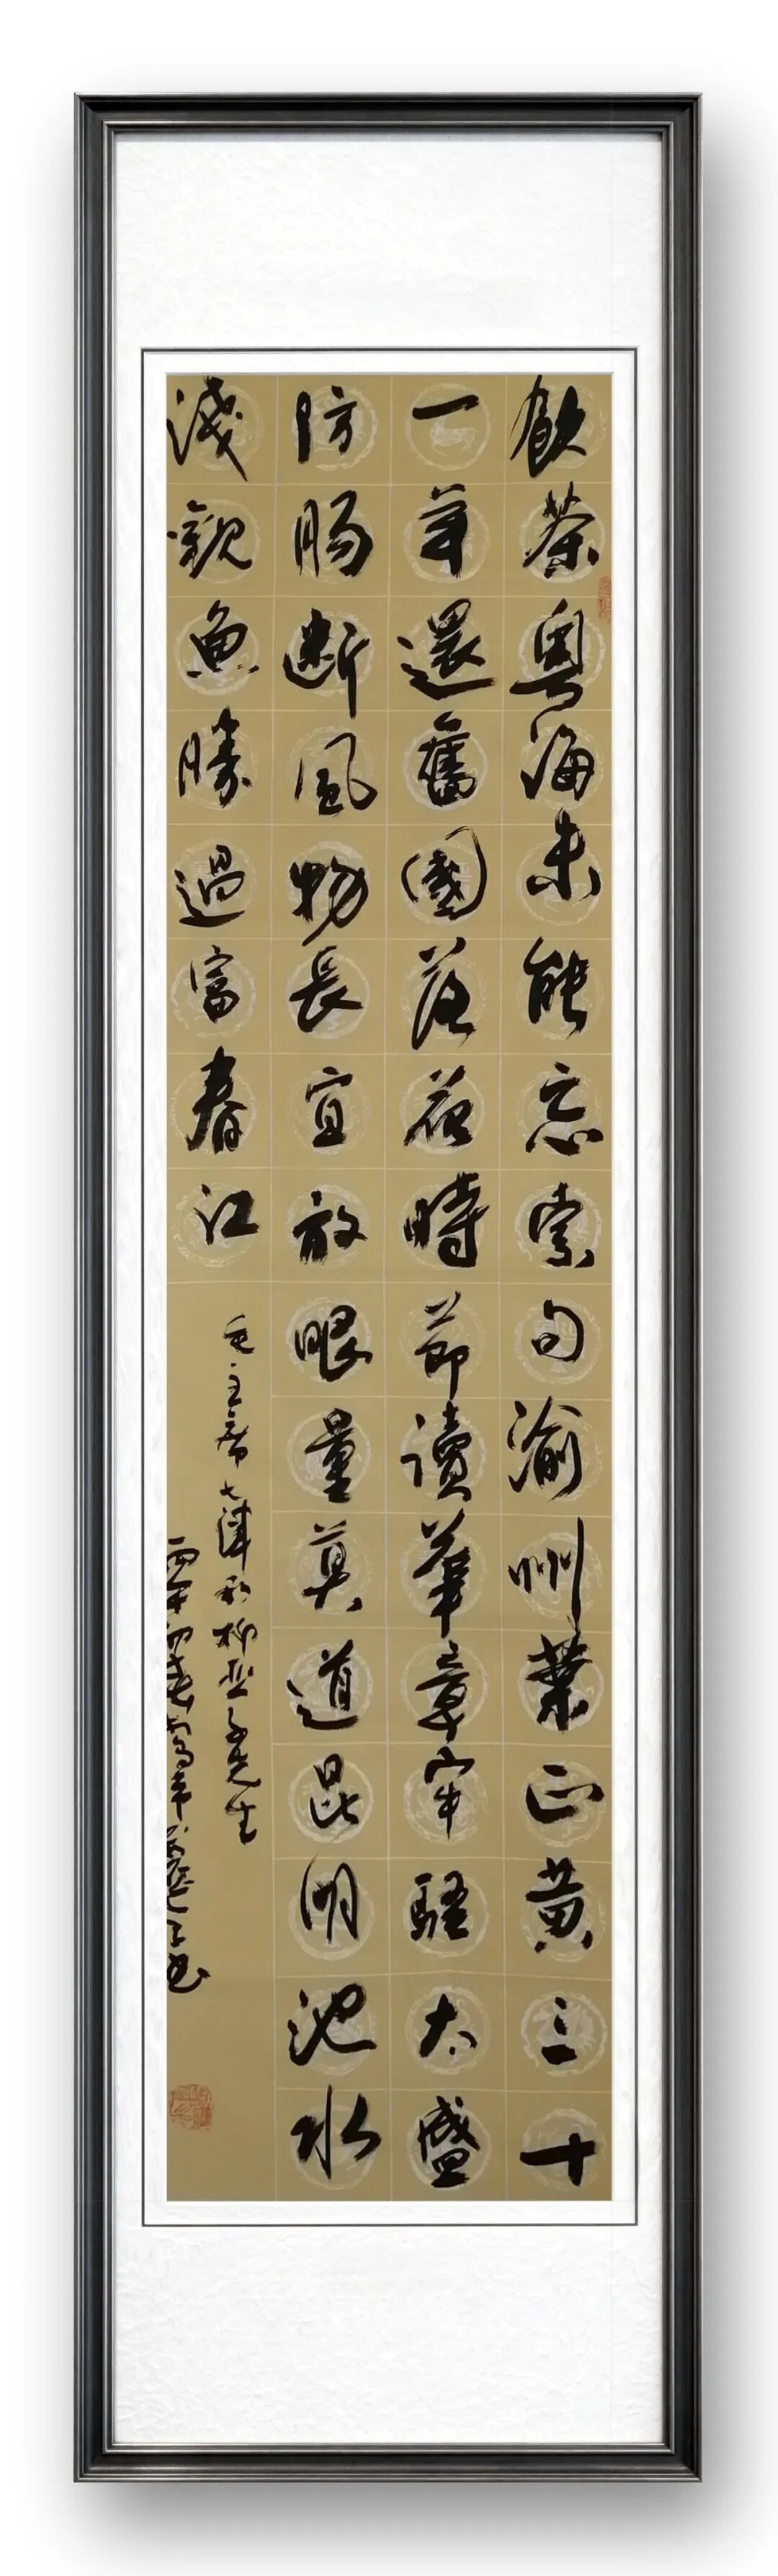 飲茶粵海未能忘索句渝州葉正黃三十
一年還舊國落花時節讀華章牢騷太盛
防腸斷風物長宜放眼量莫道昆明池水
淺觀魚勝過富春江
毛主席七律和柳亞子先生
丙午初春
書